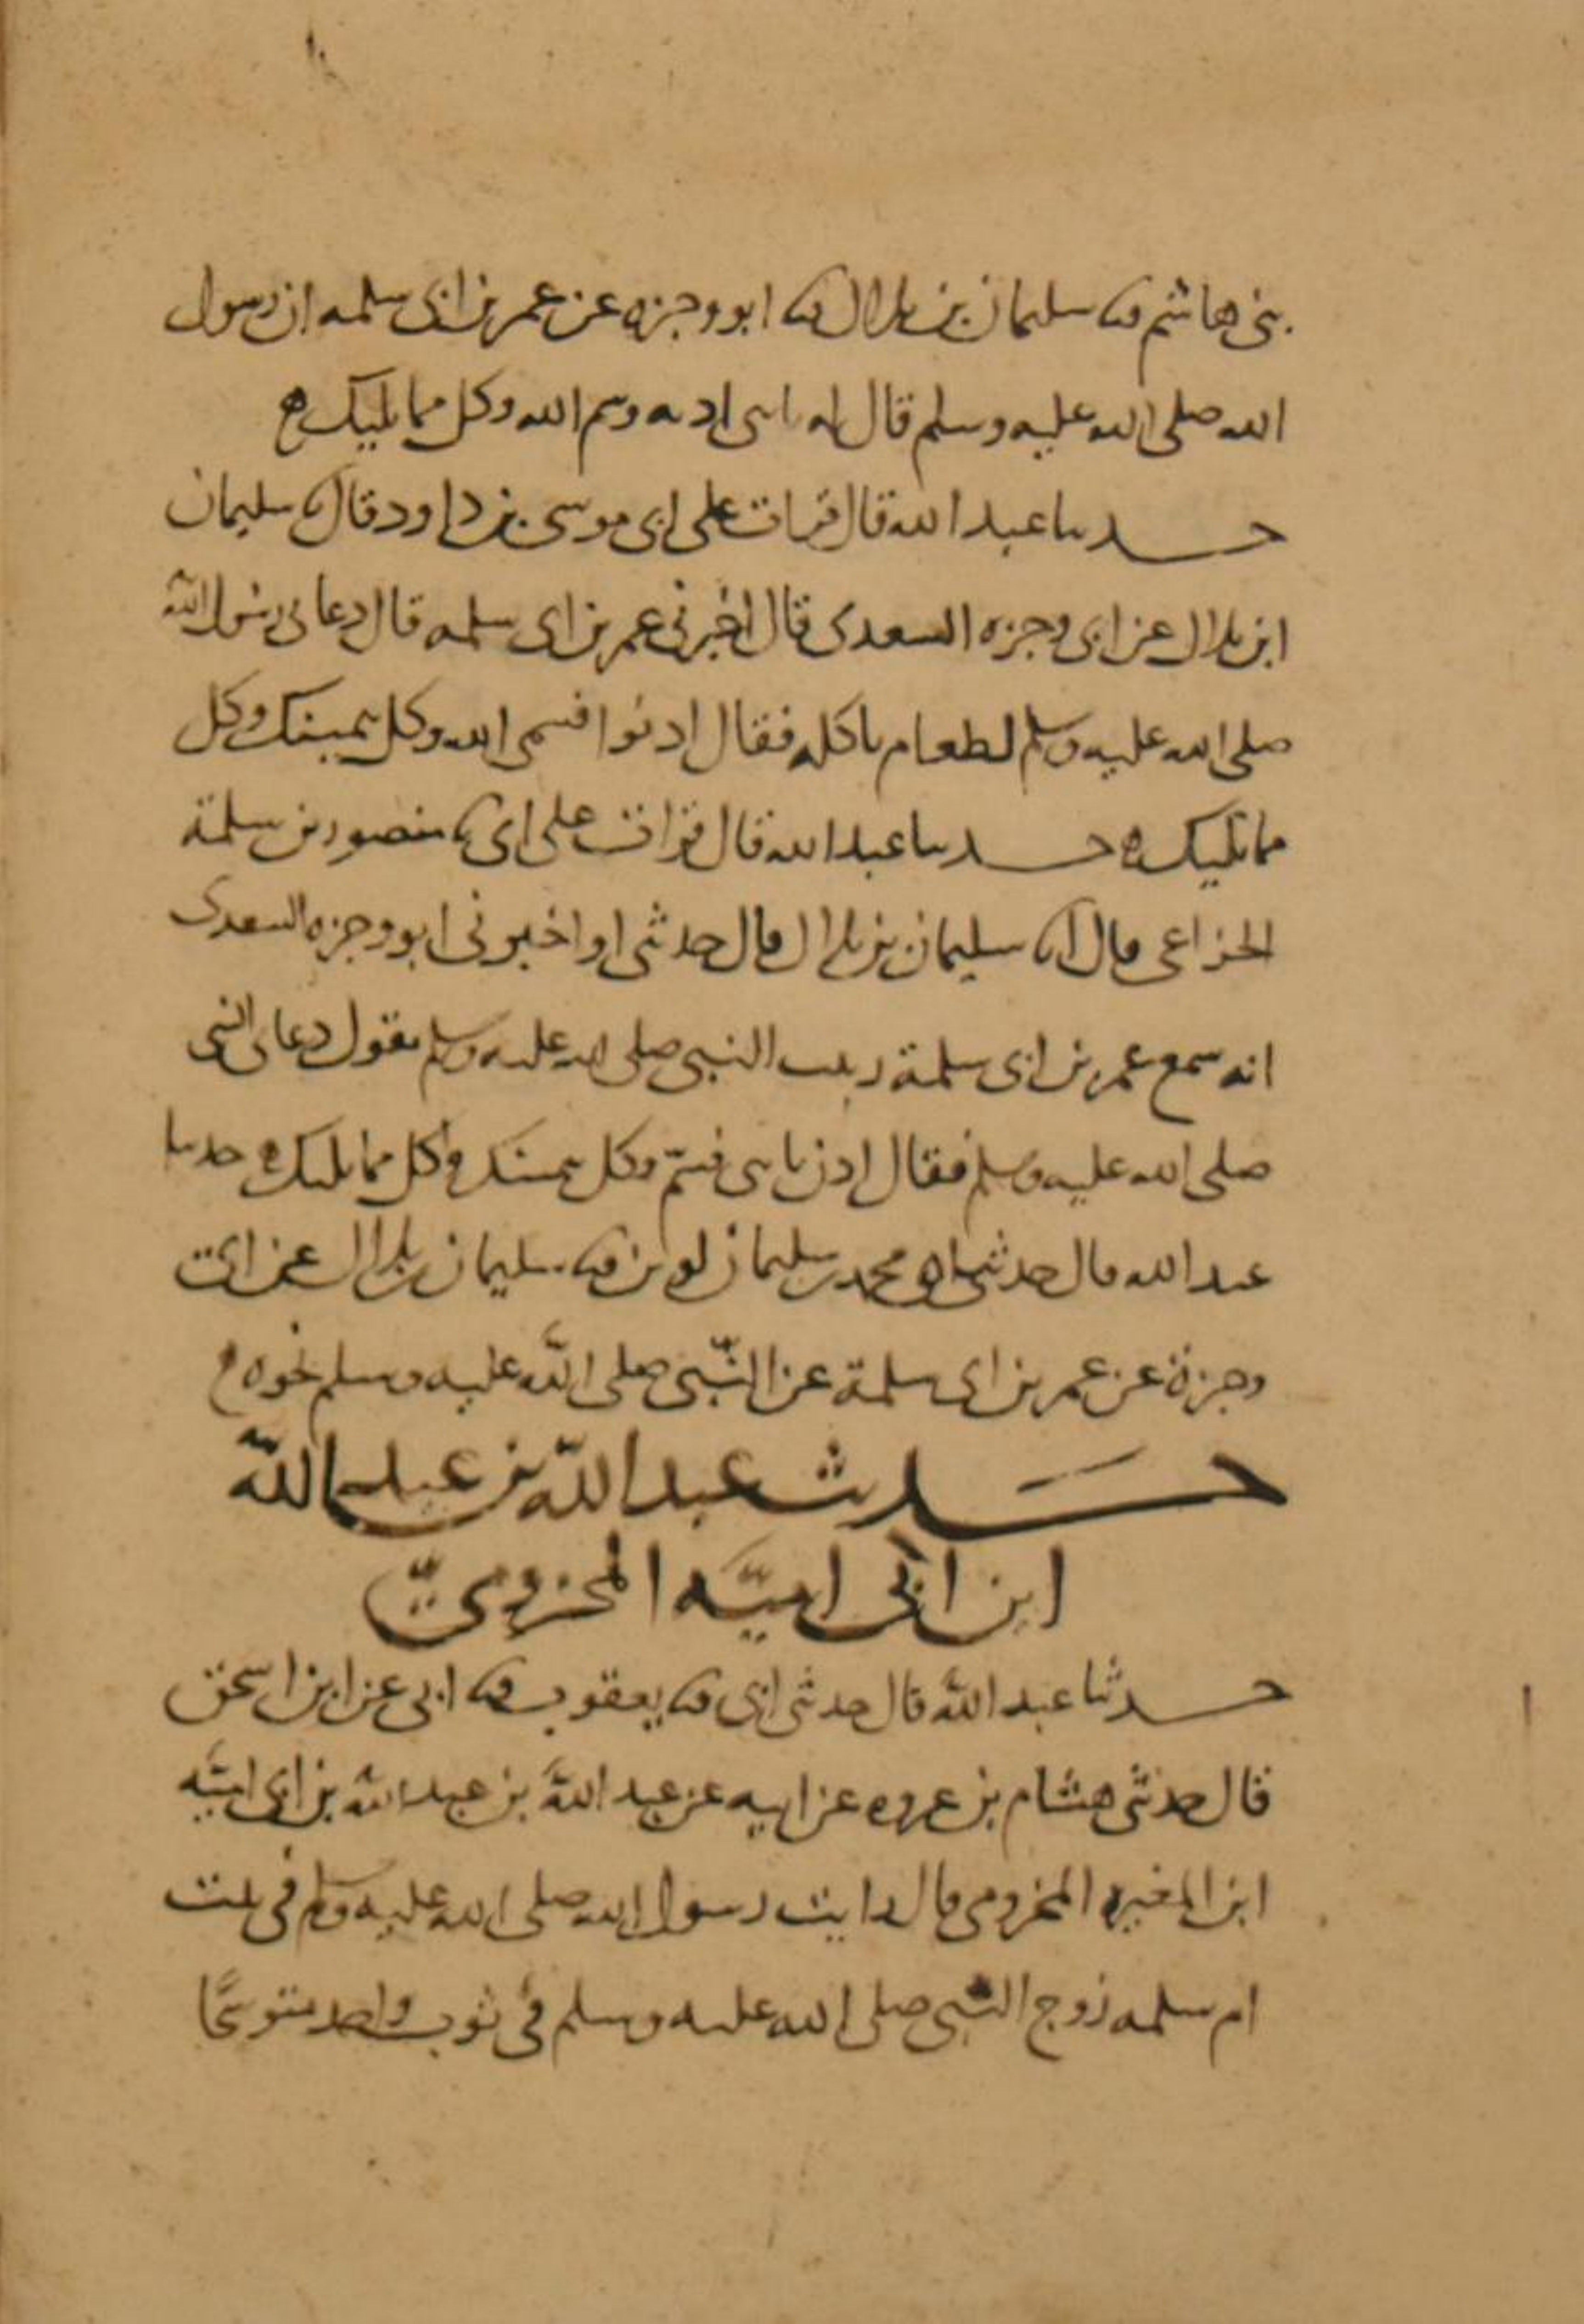 بنى هاشم ثنا سليمان بن بلال ثنا ابو وجزه عن عمر بن ابى سلمه ان رسول
الله صلى الله عليه وسلم قال له يابنى ادنه وسم الله وكل مما يليك
حدثنا عبد الله قال قرات على ابى موسى بن داود قال ثنا سليمان
ابن بلال عن ابى وجزه السعدى قال اخبرنى عمر بن ابى سلمه قال دعانى رسول الله
صلى الله عليه وسلم لطعام ياكله فقال ادنوا فسمى الله وكل بيمينك وكل
مما يليك حدثنا عبد الله قال قرات على ابى ثنا منصور بن سلمة
الخزاعى قال انا سليمان بن بلال قال حدثنى او اخبرنى ابو وجزه السعدى
انه سمع عمر بن ابى سلمة ربيب النبى صلى الله عليه وسلم يقول دعانى النبى
صلى الله عليه وسلم فقال ادن يابنى فسم وكل بيمينك وكل مما يليك حدثنا
عبد الله قال حدثناه محمد بن سليمان لوين ثنا سليمان بن بلال عن ابى
وجزة عن عمر بن ابى سلمة عن النبى صلى الله عليه وسلم نحوه
حَديث عبد الله بن عبد الله
ابن ابى اميَّه المخزومىّ
حدثنا عبد الله قال حدثنى ابى ثنا يعقوب ثنا ابى عن ابن اسحق
قال حدثنى هشام بن عروه عن ابيه عن عبد الله بن عبد الله بن ابى اميَّه
ابن المغيره المخزومى قال رايت رسول الله صلى الله عليه وسلم فى بيت
ام سلمه زوج النبى صلى الله عليه وسلم فى ثوب واحد متوشحًا